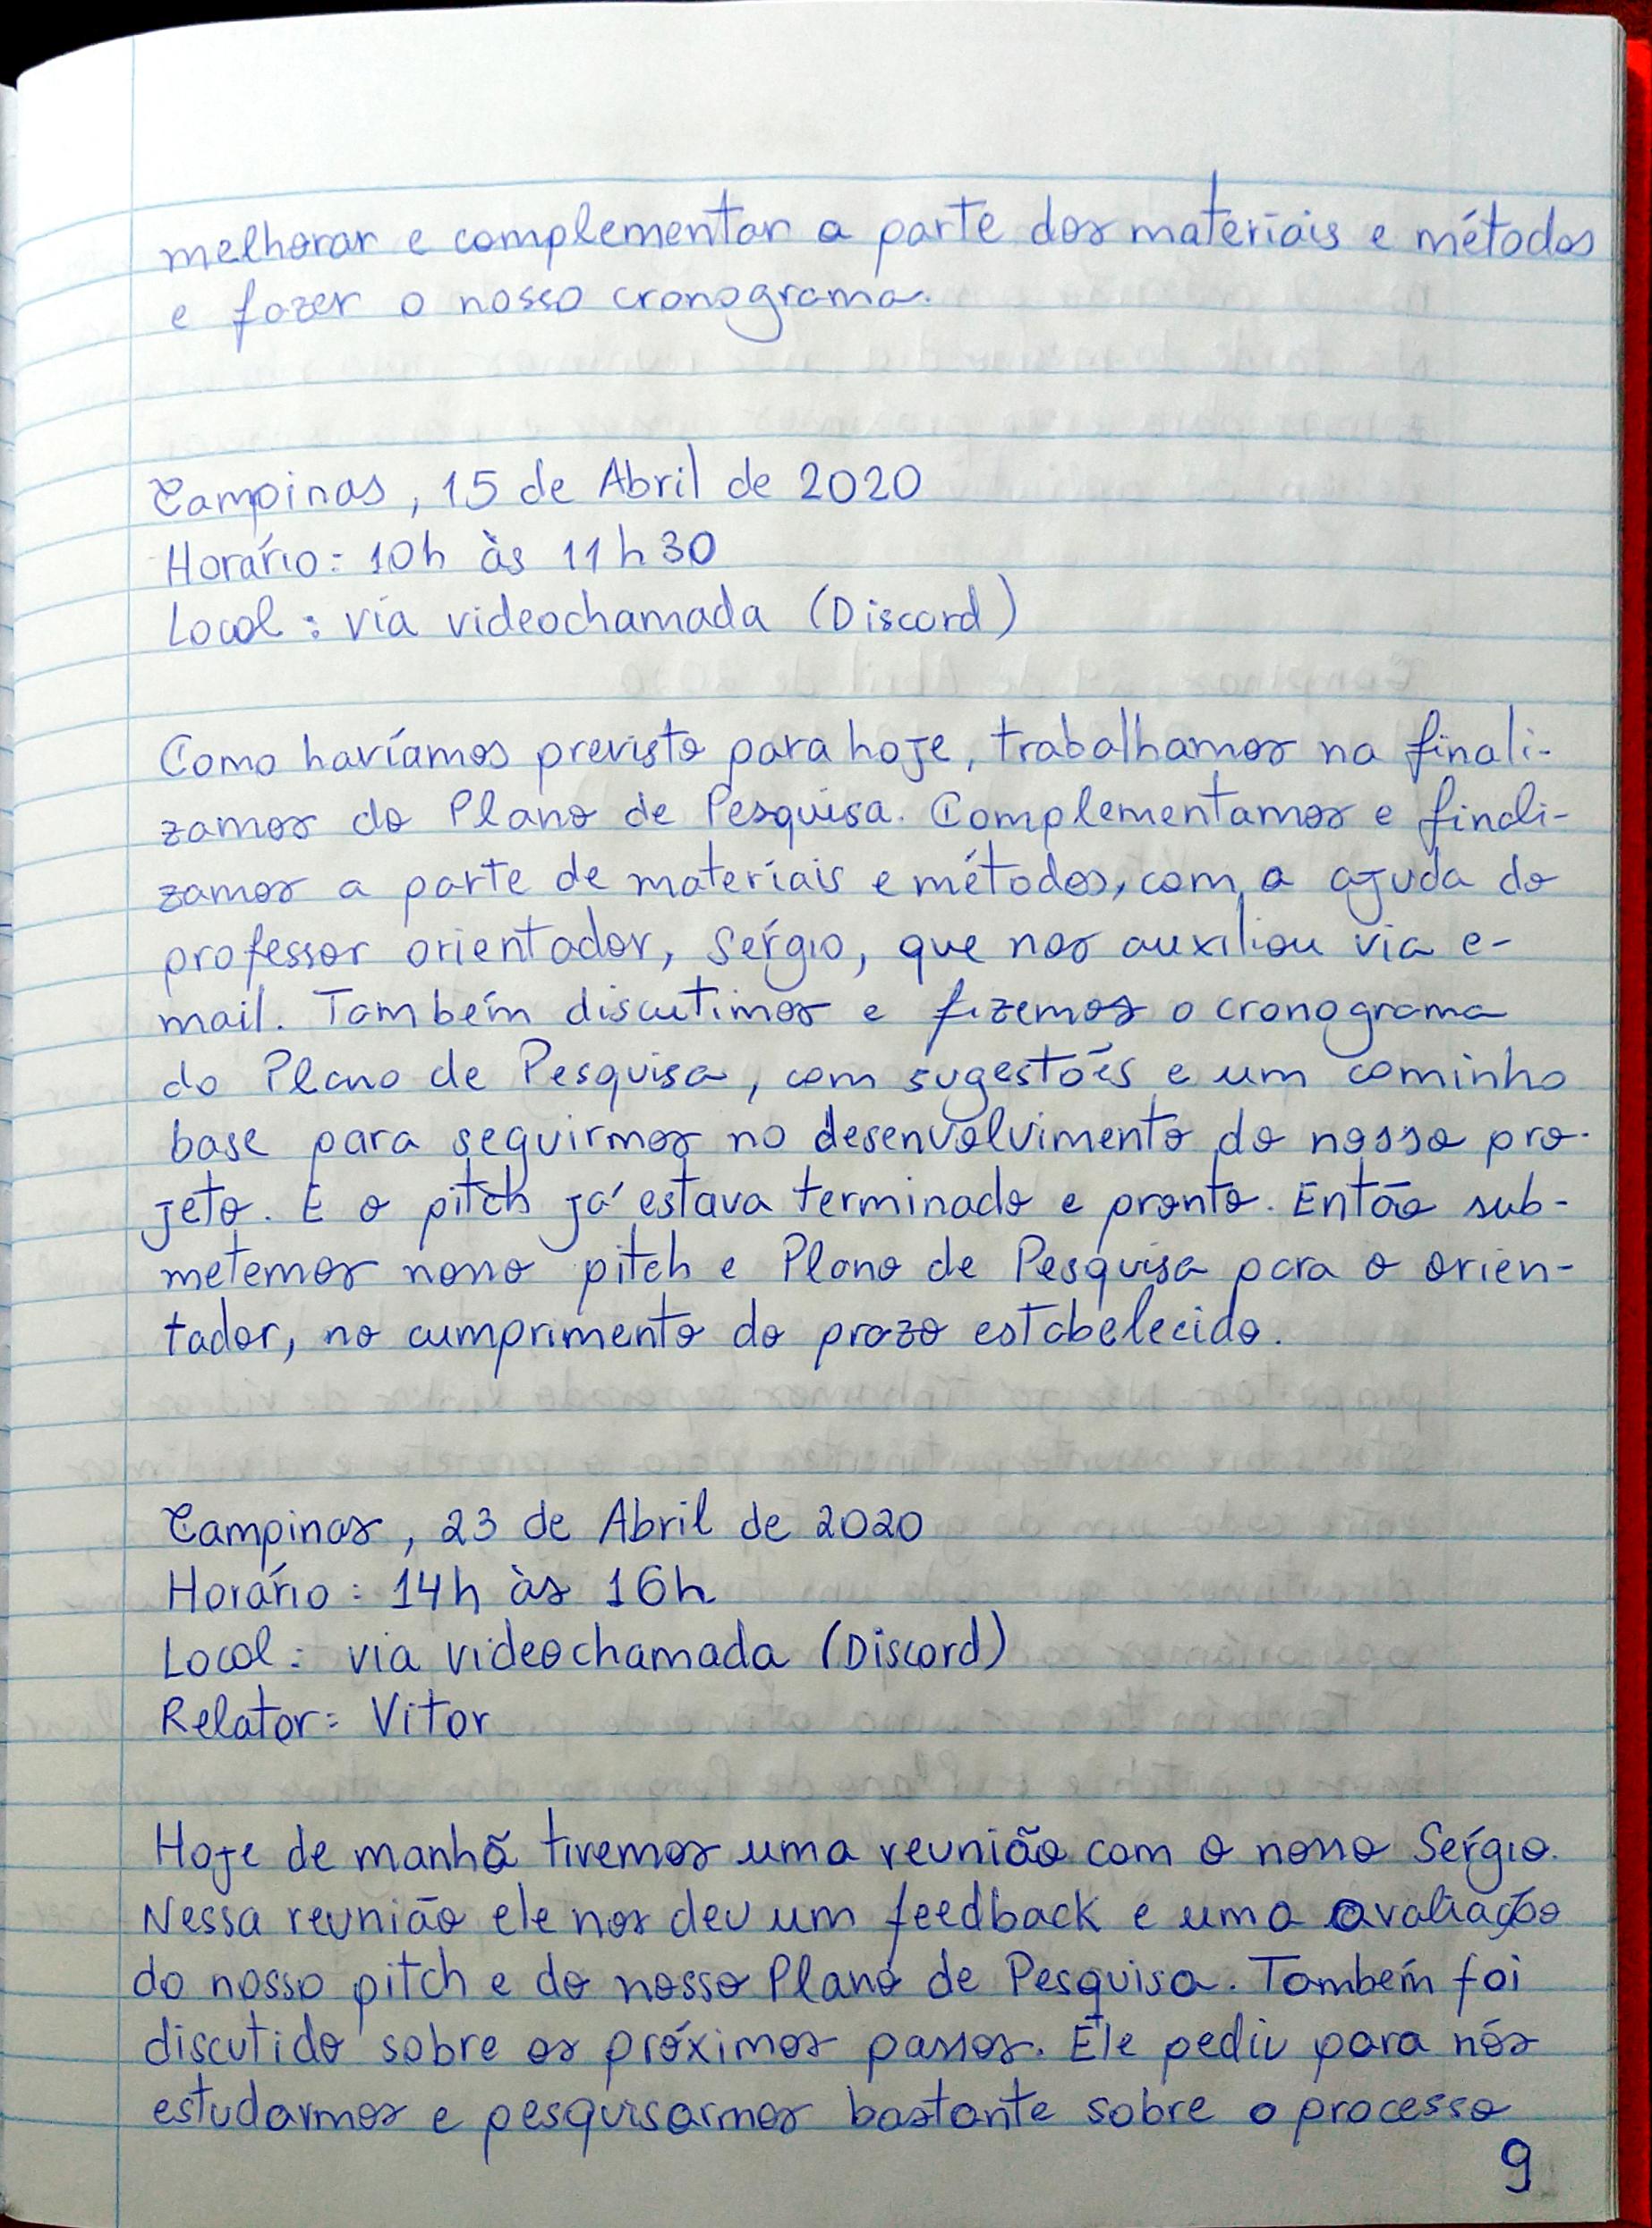 melhorar e complementar a parte dos materiais e métodos
e fazer o nosso cronograma.
Campinas, 15 de Abril de 2020
Horário: 10h às 11h30
Local: via videochamada (Discord)
Como havíamos previsto para hoje, trabalhamos na finali-
zamos do Plano de Pesquisa. Complementamos e finali-
zamos a parte de materiais e métodos, com a ajuda do
professor orientador, Sérgio, que nos auxiliou via e-
mail. Também discutimos e fizemos o cronograma
do Plano de Pesquisa, com sugestões e um caminho
base para seguirmos no desenvolvimento do nosso pro-
jeto. E o pitch já estava terminado e pronto. Então sub-
metemos nosso pitch e Plano de Pesquisa para o orien-
tador, no cumprimento do prazo estabelecido.
Campinas, 23 de Abril de 2020
Horário: 14h às 16h
Local: via videochamada (Discord)
Relator: Vitor
Hoje de manhã tivemos uma reunião com o nosso Sérgio.
Nessa reunião ele nos deu um feedback e uma avaliação
do nosso pitch e do nosso Plano de Pesquisa. Também foi
discutido sobre os próximos passos. Ele pediu para nós
estudarmos e pesquisarmos bastante sobre o processo
9